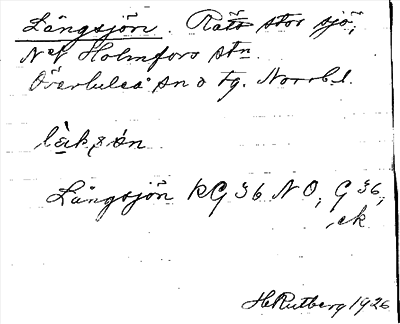 Långsjön. Rätt stor sjö,
N ef Holmfors stn
Överluleå sn o tg. Norrb.l.
Långsjön KG 36 NO, G 36,
ek
H Rutberg 1926